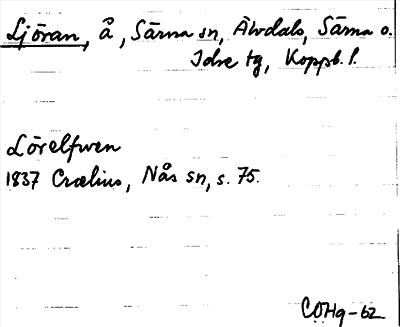 Ljöran, å, Särna sn, Älvdals, Särna o.
Idre tg, Koppb. l.
Lörelfwen
1837 Crælius, Nås sn, s. 75.
COHg-62